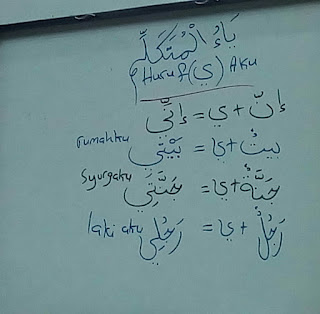 يَاءُ الْمُتَكَلِّمِ
Huruf (ي) Aku
إِنَّ + ي = إِنِّي
rumahku بَيْتٌ + ي = بَيْتِي
syurgaku جَنَّةٌ + ي = جَنَّتِي
laki aku رَجُلٌ + ي = رَجُلِي